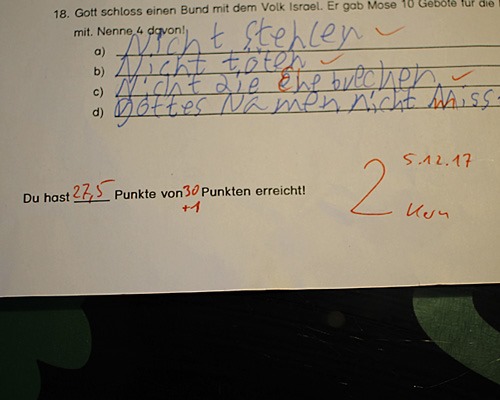 18. Gott schloss einen Bund mit dem Volk Israel. Er gab Mose 10 Gebote für die
mit. Nenne 4 davon!
a) Nicht stehlen
b) Nicht töten
c) Nicht die Ehe brechen
d) Gottes Namen nicht miss-
5.12.17
Du hast 27,5 Punkte von 30 Punkten erreicht!
+1
2